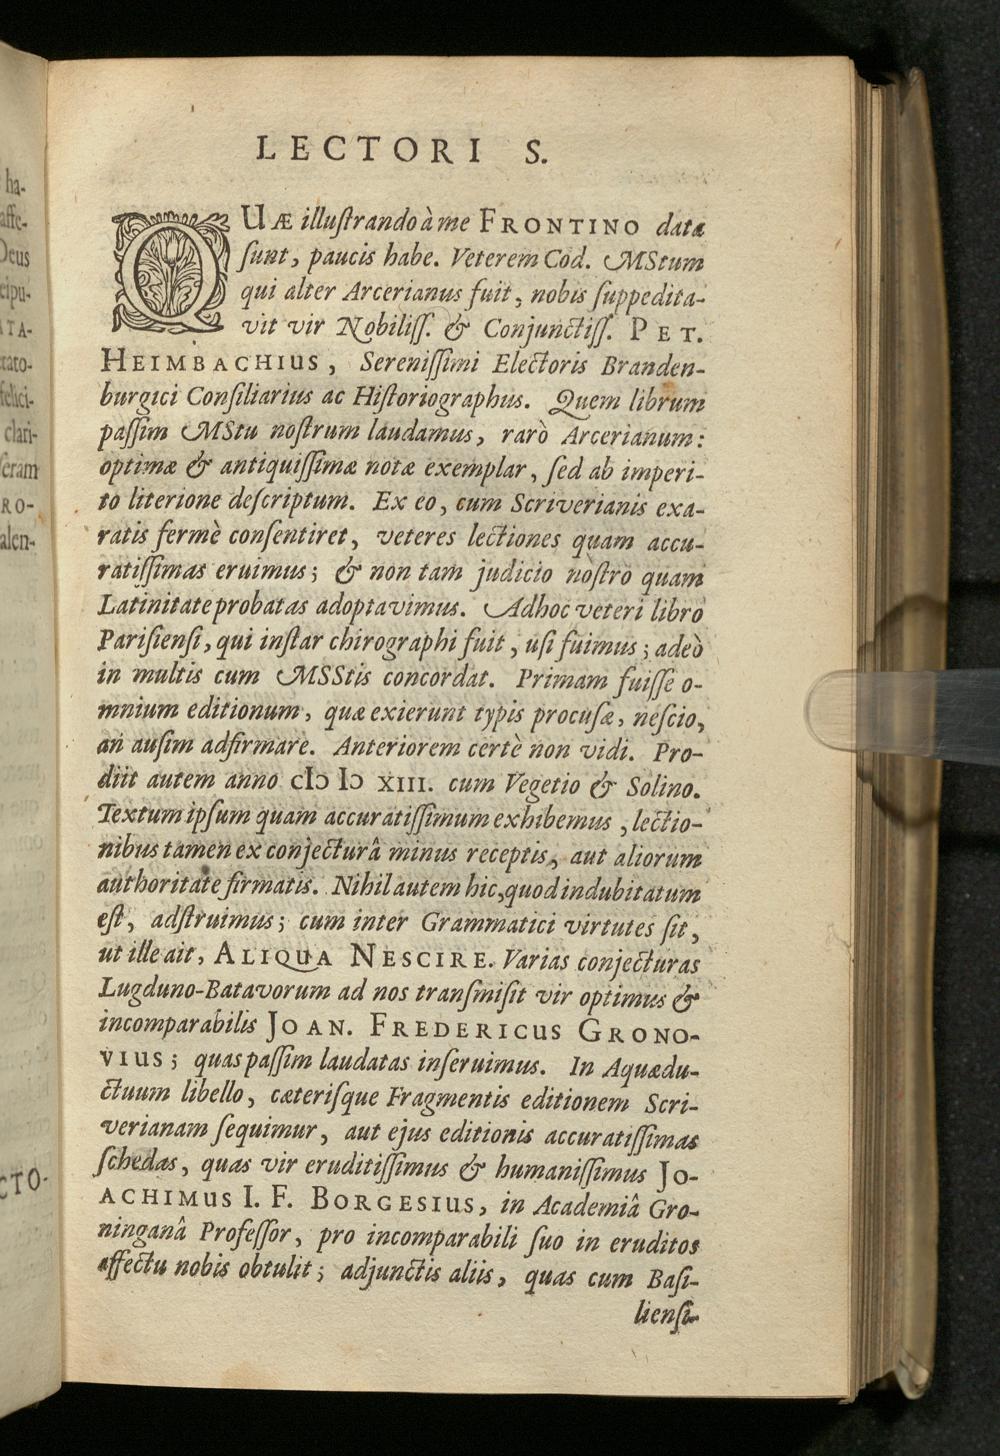 LECTORI S.
QUÆ illuſtrando à me FRONTINO datæ
ſunt, paucis habe. Veterem Cod. MStum
qui alter Arcerianus fuit, nobis ſuppedita-
vit vir Nobiliſſ. & Conjunctiſſ. PET.
HEIMBACHIUS, Sereniſſimi Electoris Branden-
burgici Conſiliarius ac Hiſtoriographus. Quem librum
paſſim MStu noſtrum laudamus, rarò Arcerianum:
optimæ & antiquiſſimæ notæ exemplar, ſed ab imperi-
to literione deſcriptum. Ex eo, cum Scriverianis exa-
ratis fermè conſentiret, veteres lectiones quam accu-
ratiſſimas eruimus; & non tam judicio noſtro quam
Latinitate probatas adoptavimus. Adhoc veteri libro
Pariſienſi, qui inſtar chirographi fuit, uſi fuimus; adeò
in multis cum MSStis concordat. Primam fuiſſe o-
mnium editionum, quæ exierunt typis procuſæ, neſcio,
an auſim adfirmare. Anteriorem certè non vidi. Pro-
diit autem anno cIɔ Iɔ XIII. cum Vegetio & Solino.
Textum ipſum quam accuratiſſimum exhibemus, lectio-
nibus tamen ex conjecturâ minus receptis, aut aliorum
authoritate firmatis. Nihil autem hic, quod indubitatum
eſt, adſtruimus; cum inter Grammatici virtutes ſit,
ut ille ait, ALIQUA NESCIRE. Varias conjecturas
Lugduno-Batavorum ad nos tranſmiſit vir optimus &
incomparabilis JOAN. FREDERICUS GRONO-
VIUS; quas paſſim laudatas inſeruimus. In Aquædu-
ctuum libello, cæteriſque Fragmentis editionem Scri-
verianam ſequimur, aut ejus editionis accuratiſſimas
ſchedas, quas vir eruditiſſimus & humaniſſimus JO-
ACHIMUS I. F. BORGESIUS, in Academiâ Gro-
ninganâ Profeſſor, pro incomparabili ſuo in eruditos
affectu nobis obtulit; adjunctis aliis, quas cum Baſi-
lienſi-